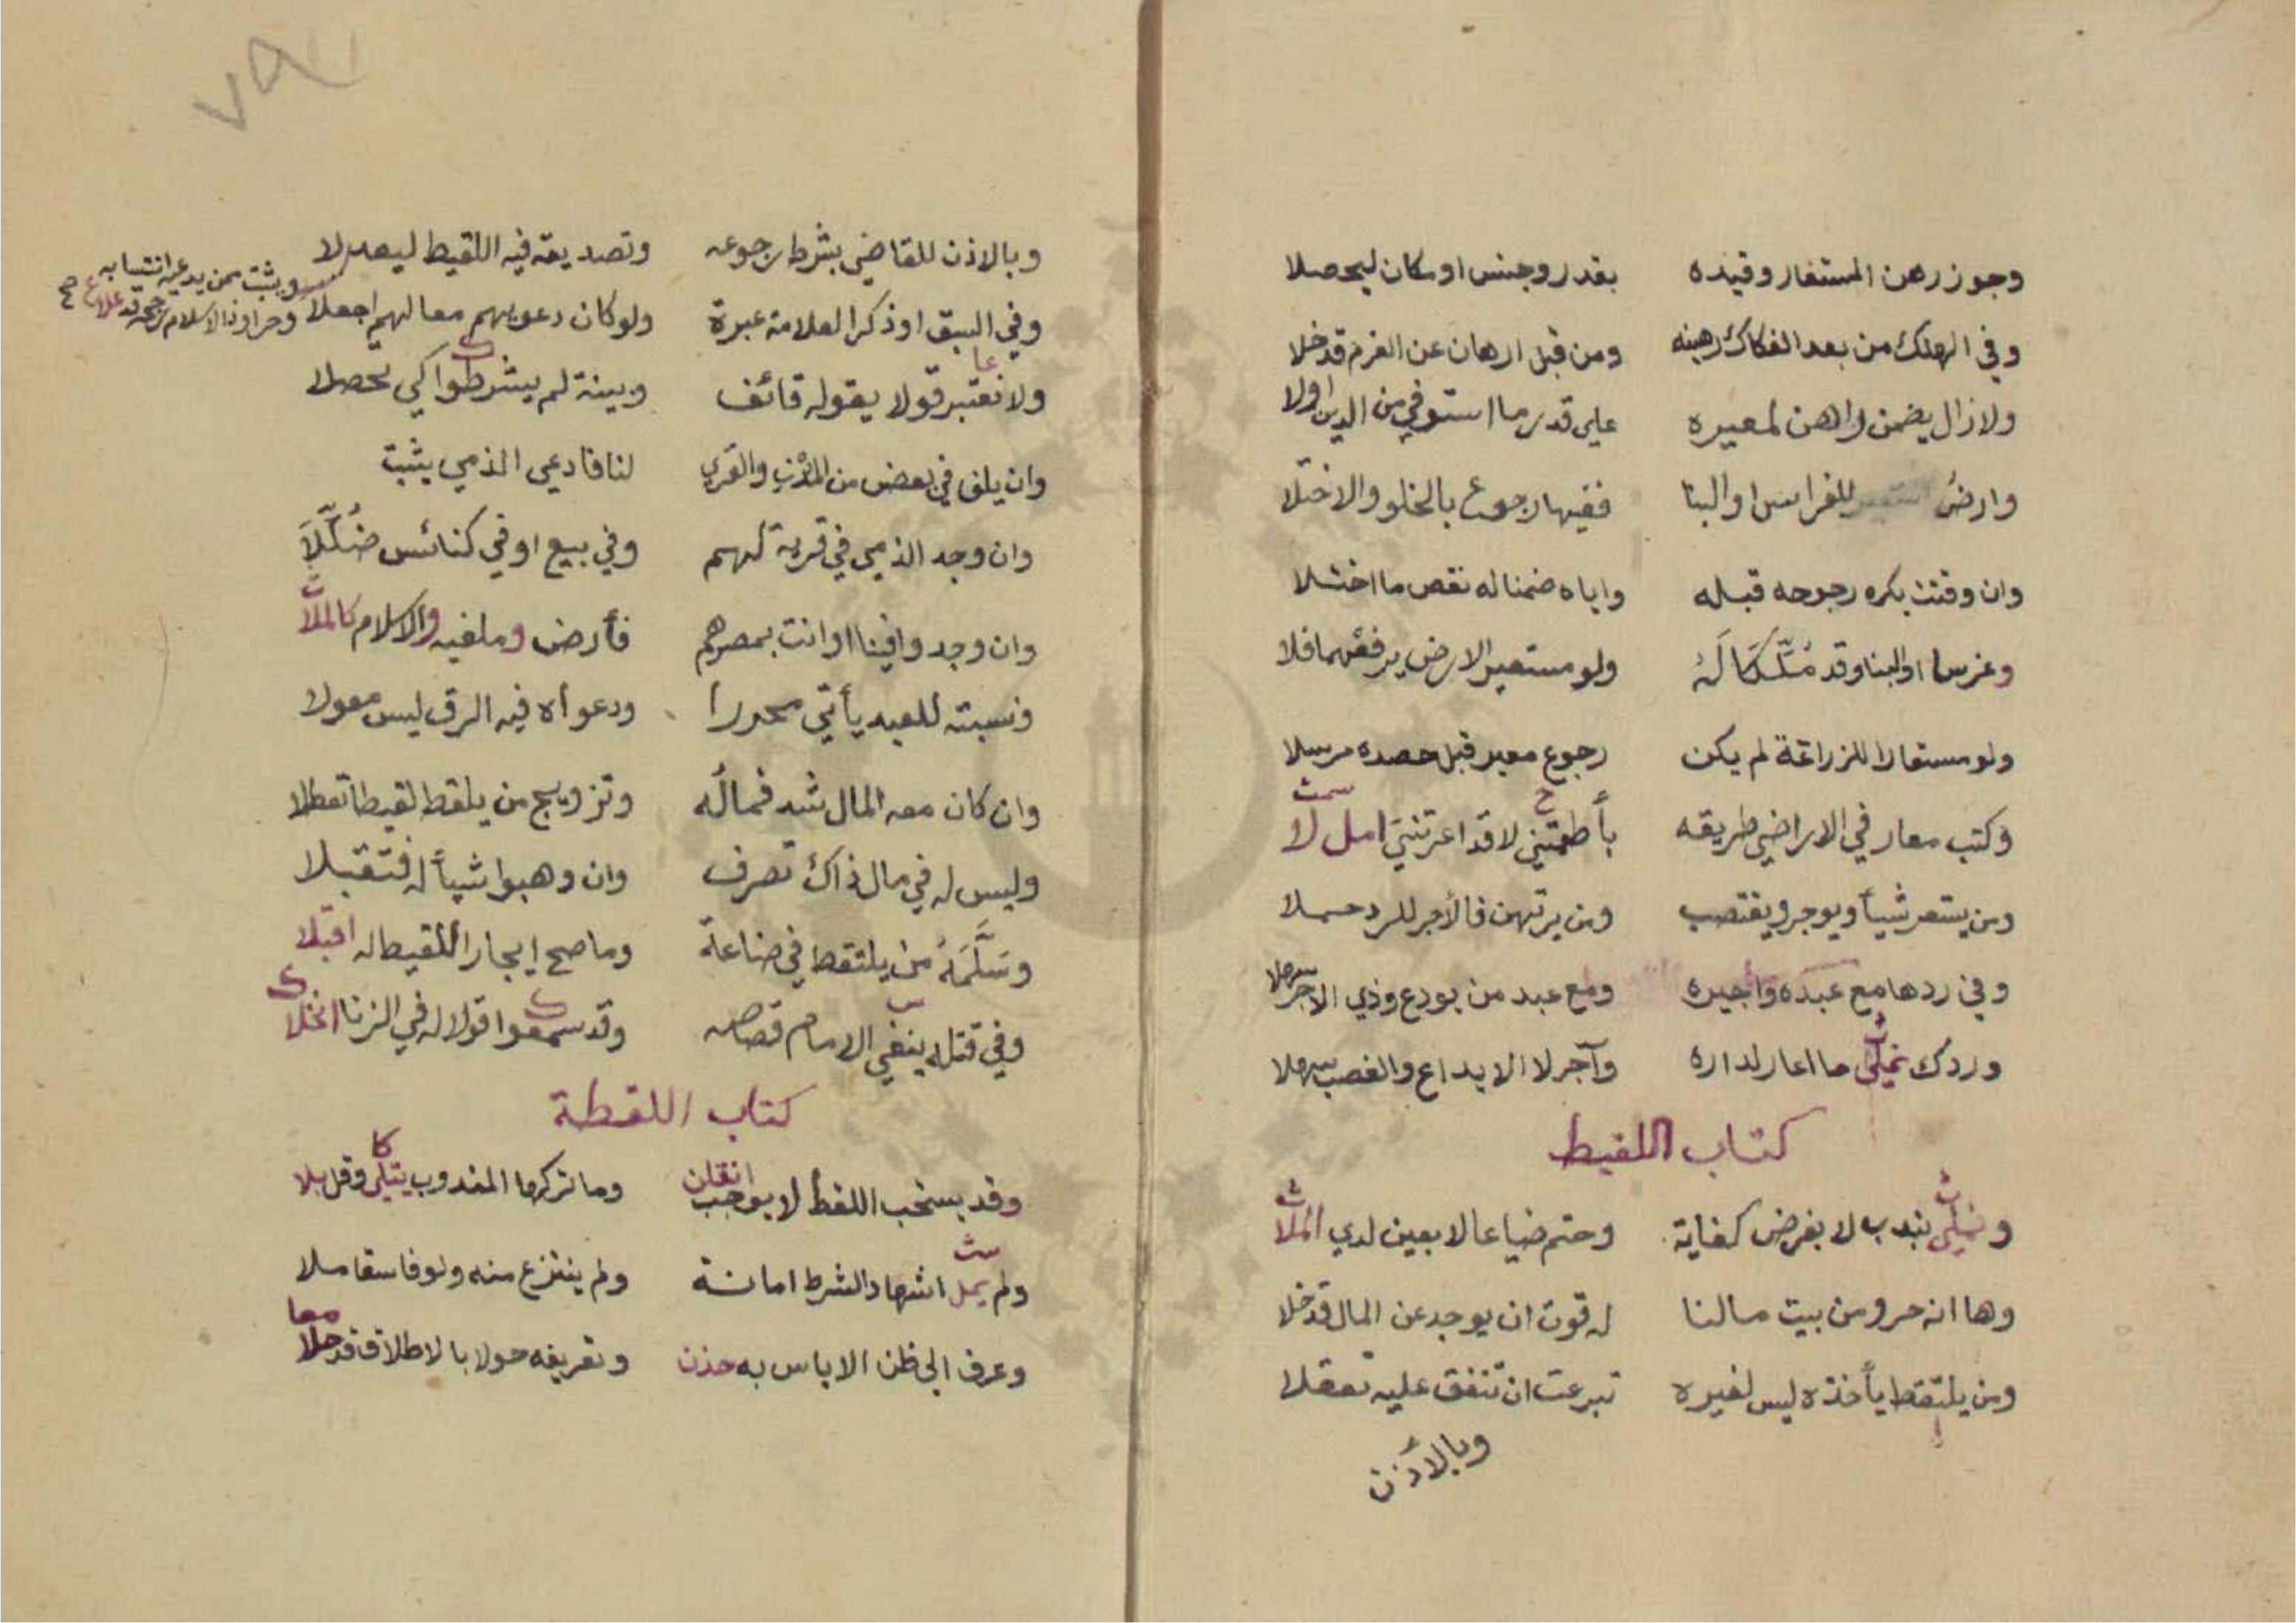 وجوز رهن المستعار وقيده بقدر وجنس او مكان ليحصلا
وفي الهلك من بعد الفكاك رهينه ومن قبل ارهان عن الغرم قد خلا
ولا زال يضمن راهن لمعيره على قدر ما استوفي من الدين اولا
وارض للغراس او البنا ففيها رجوع بالخلو والاختلا
وان وقتت يكره رجوعه قبله واياه ضمنا له نقص ما اختلا
وغرسا او البنا وقد له ولو مستعير الارض يرفعهما فلا
ولو مستعارا للزراعة لم يكن رجوع معير قبل حصده مرسلا
وكتب معار في الاراضي طريقه بأطعمتني لا قد اعرتني امل لا
ومن يستعر شيأ ويوجر ويغتصب ومن يرتهن فالأجر للرد حملا
وفي ردها مع عبده وأجيره ومع عبد من يودع وذي الاجر
وردك ما اعار لداره وآجر لا الايداع والغصب سهلا
كتاب اللقيط
بندب لا بفرض كفاية وحتم ضياعا لا بعين لدي الملا
وها انه حر ومن بيت مالنا له قوت ان يوجد عن المال قد خلا
ومن يلتقط يأخذه ليس لغيره تبرعت ان تنفق عليه تعقلا
وبالأذن
٧٩
وبالاذن للقاضي بشرط رجوعه وتصديقه فيه اللقيط ليعدلا
ويثبت ممن يدعيه انتسابه
وفي السبق او ذكر العلامة عبرة ولو كان دعويهم معا لهم اجعلا
ولا نعتبر قولا يقوله قائف وبينة لم يشرطوا كي تحصلا
وان يلف في بعض من المدن والقري لنا فادعى الذمي يثبت
وان وجد الذمي في قرية لهم وفي بيع او في كنائس ضللا
وان وجدوا فينا او انت بمصرهم فأرض وملفيه والاسلام كالملا
ونسبته للعبد يأتي محررا ودعوأه فيه الرق ليس معولا
وان كان معه المال شد فماله وتزويج من يلقط لقيطا تعطلا
وليس له في مال ذاك تصرف وان وهبوا شيأ له فتقبلا
وسلمه من يلتقط في صناعة وما صح إيجار اللقيط له اقبلا
وفي قتله ينفي الامام قصاصه وقد سمعوا قولا له في الزنا انخلا
كتاب اللقطة
وقد يستحب اللقط لا يوجب انقلن وما تركها المندوب وقل بلا
ولم يمل اشهاد الشرط امانة ولم ينتزع منه ولو فاسقا ملا
وعرف الى ظن الاياس به حذن وتعريفه حولا بالاطلاق قد حلا